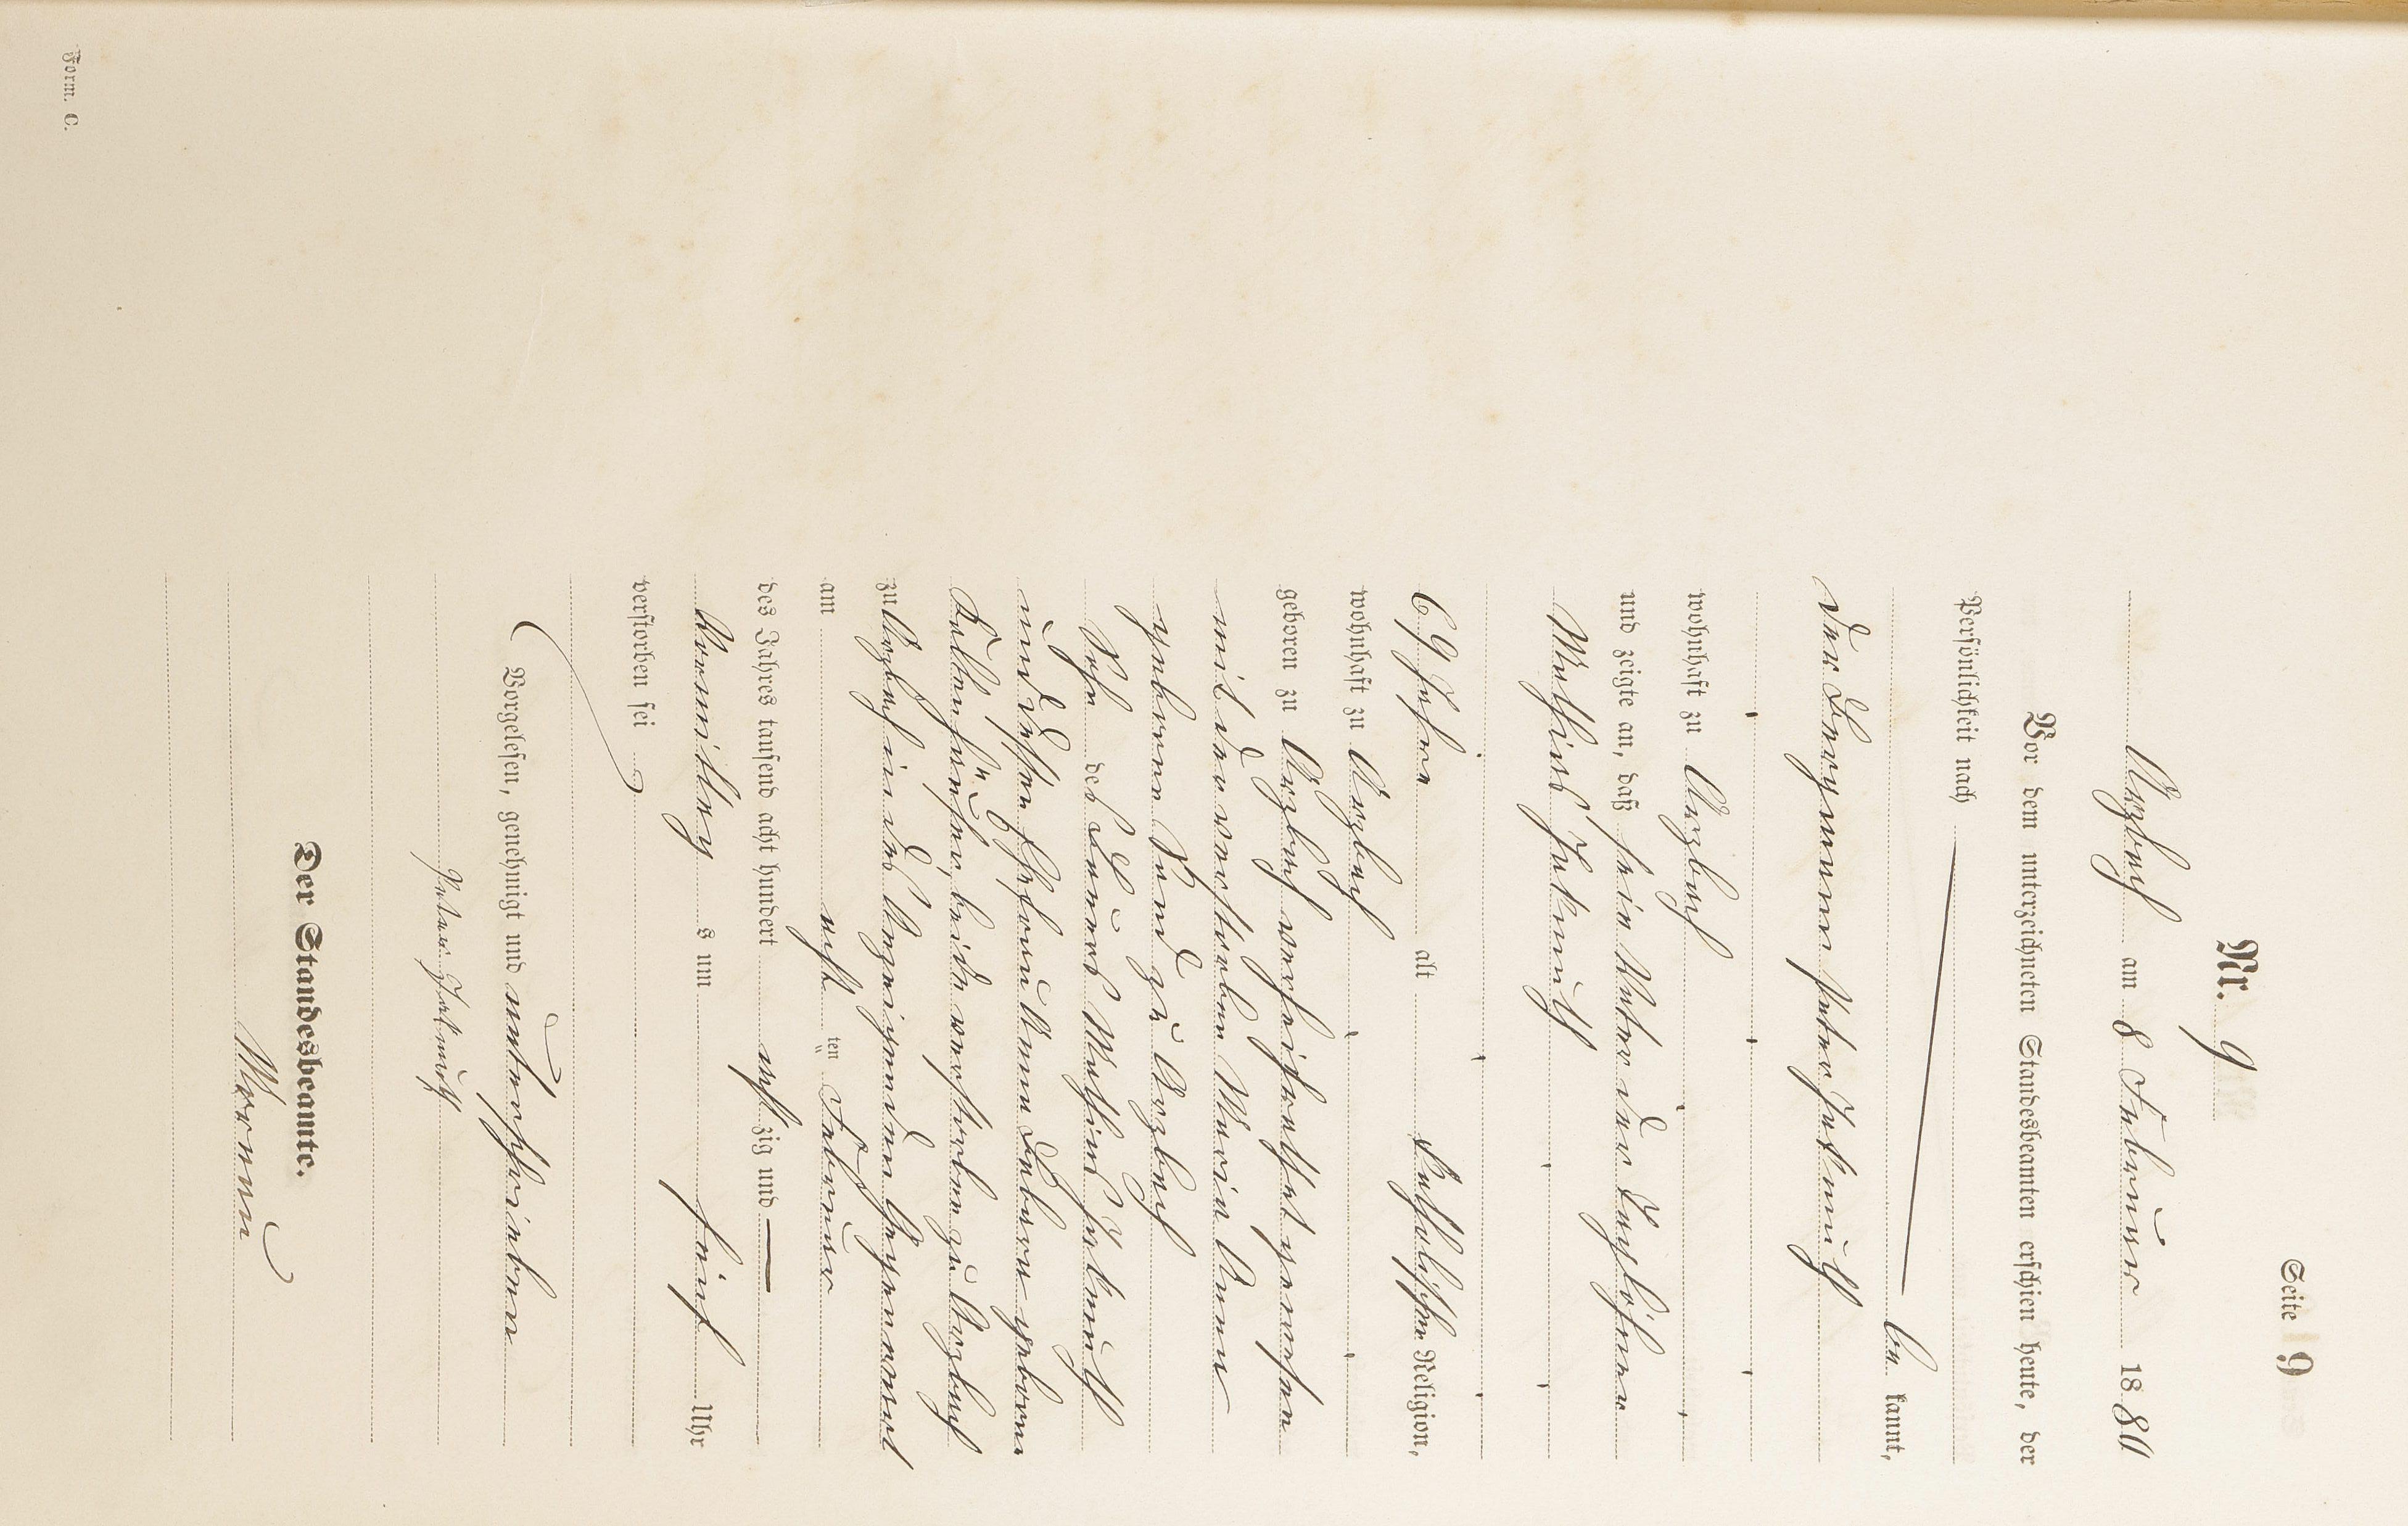 Seite 9
Nr. 9
Arzbach am 8 Februar 1880
Vor dem unterzeichneten Standesbeamten erschien heute, der
Persönlichkeit nach
be kannt,
der Bergmann Peter
wohnhaft zu Arzbach
und zeigte an, daß sein Vater der Taglöhner
Mathias
69 Jahre alt Katholischer Religion,
wohnhaft zu Arzbach
geboren zu Arzbach verheirathet gewesen
mit der verstorben Maria Anna
geborene zu Arzbach
Sohn des Mathias
und dessen Ehefrau Anna geborne
beide verstorben zu Arzbach
zu Arzbach in des Anzeigenden Gegenwart
am acht ten Februar
des Jahres tausend acht hundert acht zig und
Vormittag s um fünf Uhr
verstorben sei
Vorgelesen, genehmigt und unterschrieben
Peter
Der Standesbeamte.
Form. C.